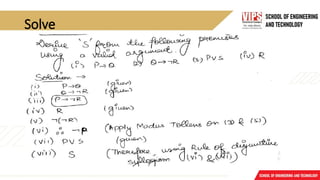 Solve
VIPS SCHOOL OF ENGINEERING AND TECHNOLOGY
Derive 'S' from the following premises
using a valid argument.
(i) P→Q (ii) Q→¬R (iii) P∨S (iv) R
Solution →
(i) P→Q (given)
(ii) Q→¬R (given)
(iii) P→¬R
(iv) R (given)
(v) ¬(¬R)
(vi) ∴ ¬P (Apply Modus Tollens on
(vii) P∨S (given)
(viii) S (Therefore, using Rule of disjunctive
syllogism (vi) & (vii))
SCHOOL OF ENGINEERING AND TECHNOLOGY